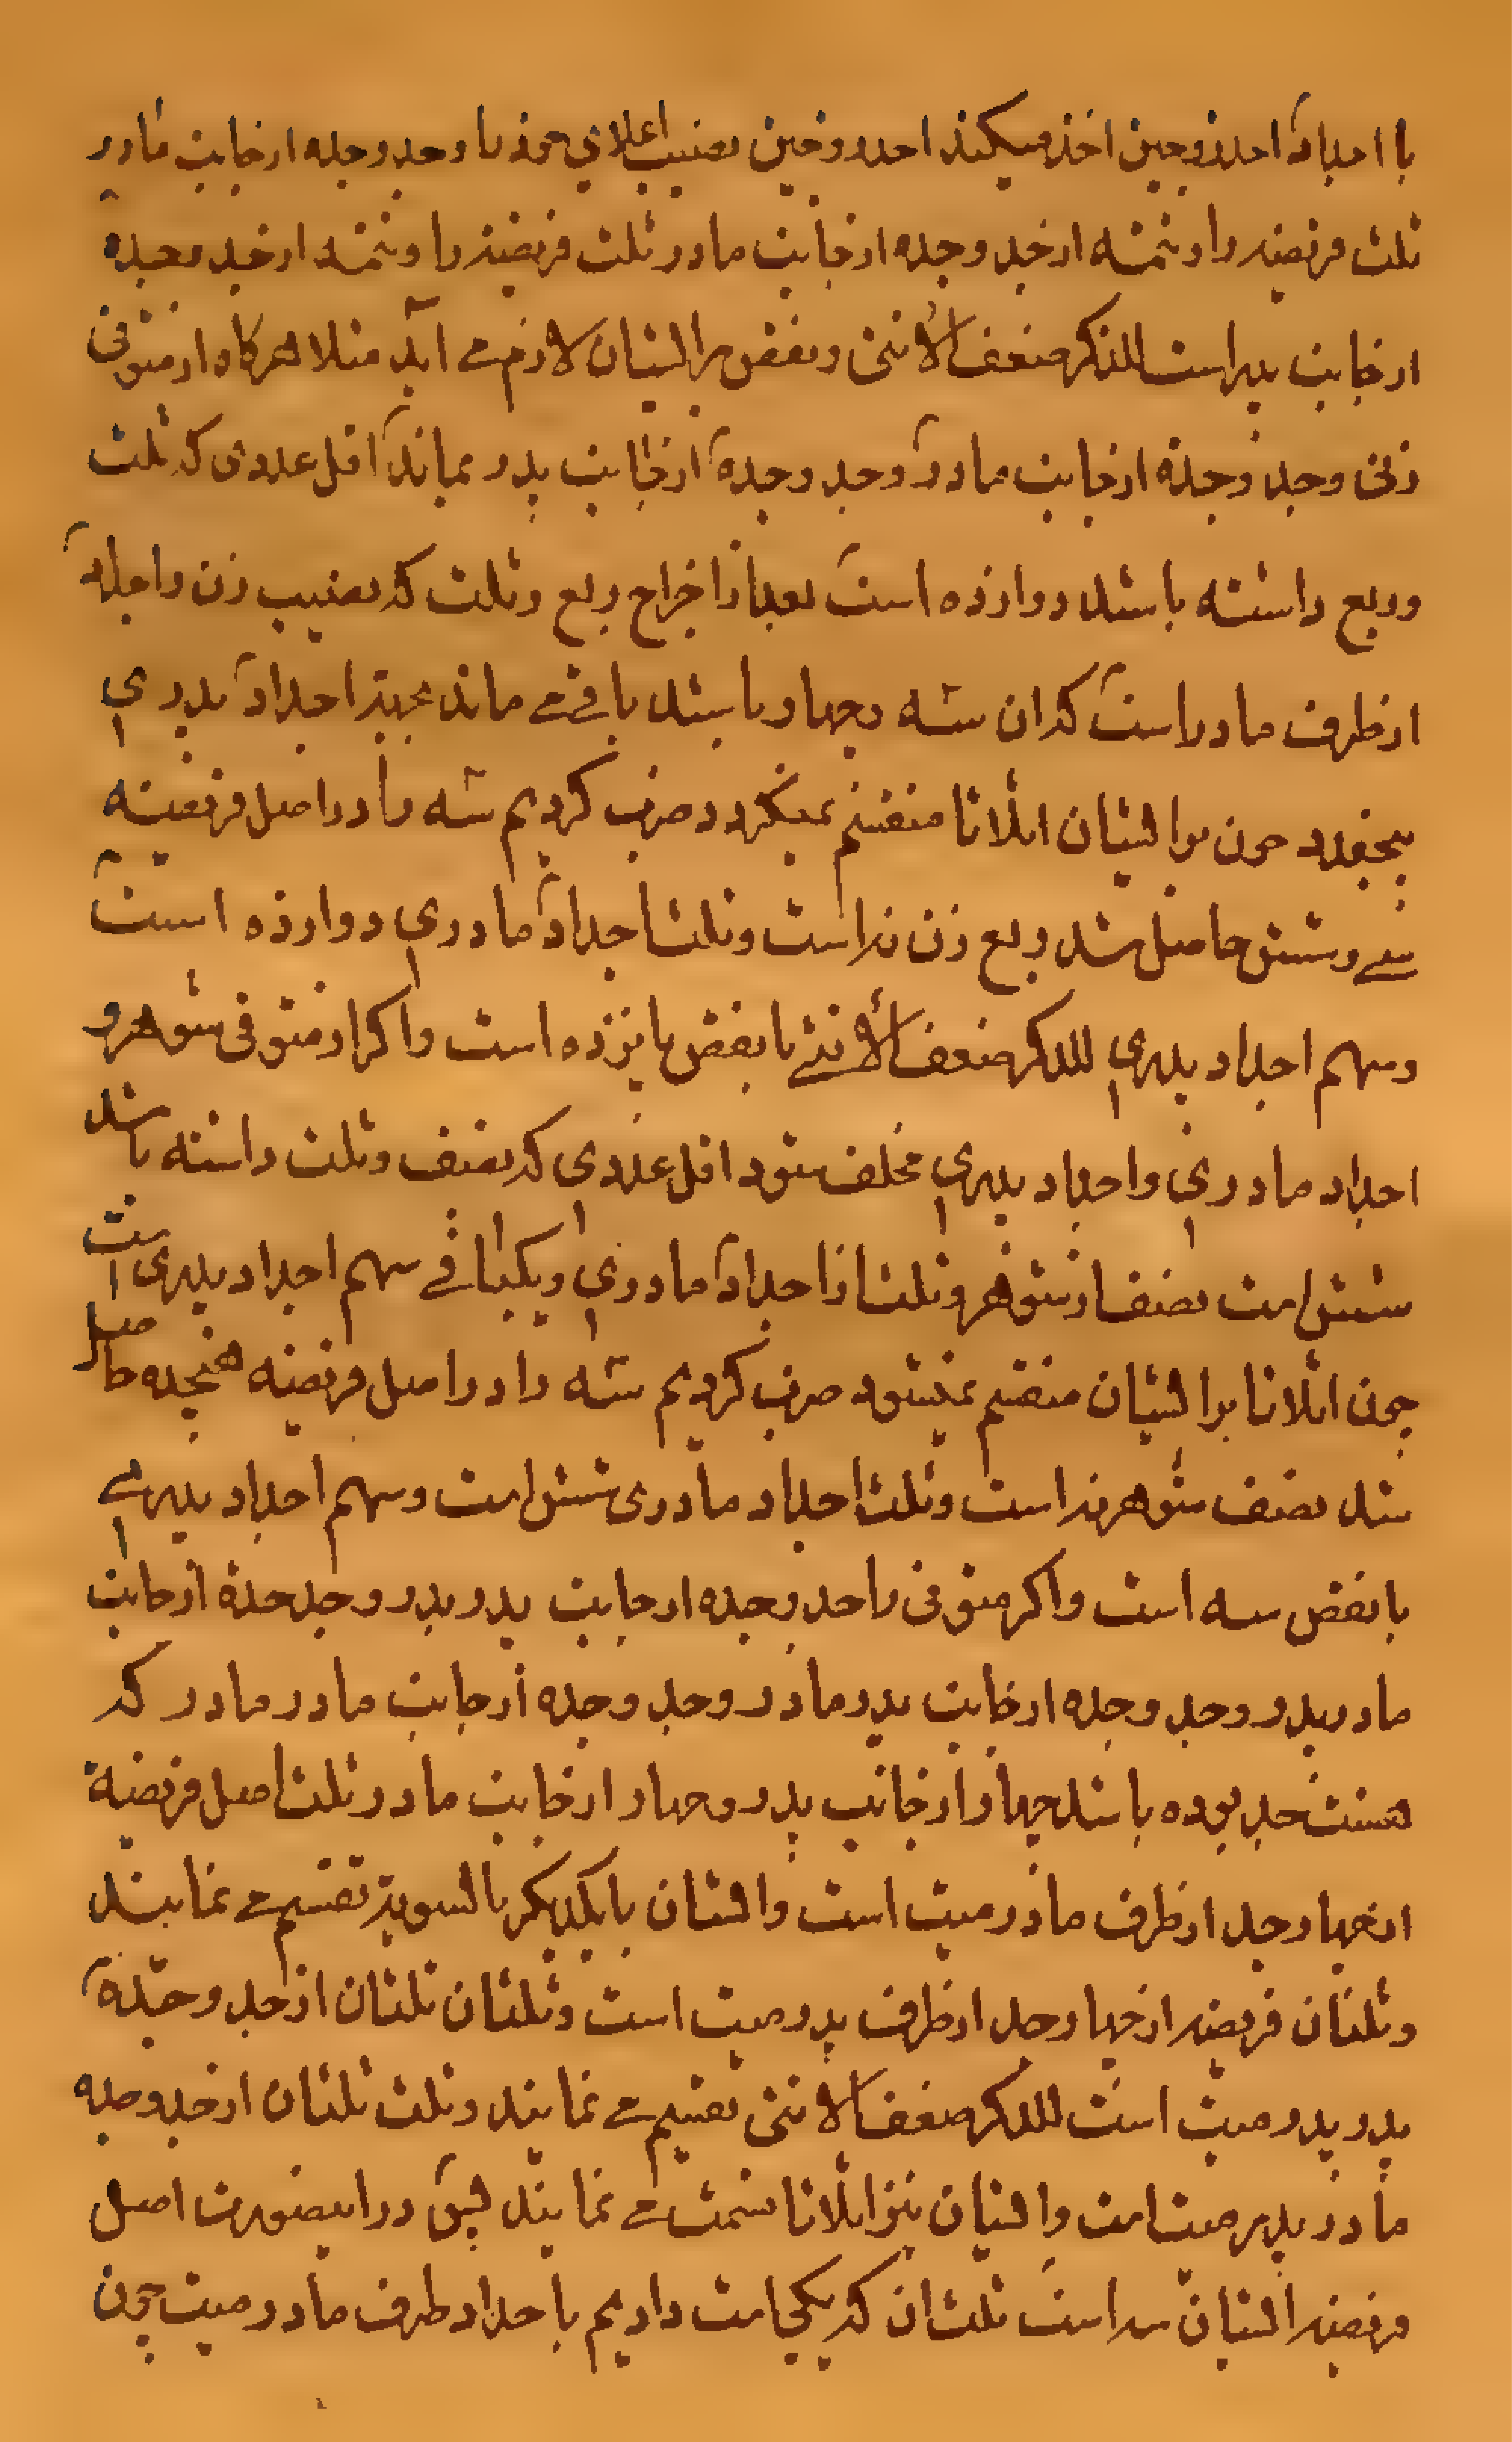 با اجداد احد زوجین اخذ میکند احد زوجین نصیب اعلای خود را و جد و جده از جانب مادر
ثلث فریضه را و تتمه از جد و جده از جانب مادر ثلث فریضه را و تتمه از جد و جده
از جانب پدر است للذکر ضعف الانثی و نقص بر ایشان لازم می آید مثلا هرکاه از متوفی
زنی و جد و جده از جانب مادر و جد و جده از جانب پدر بماند اقل عددی که ثلث
و ربع داشته باشد دوازده است بعد از اخراج ربع و ثلث که نصیب زن و اجداد
از طرف مادر است که ان سه و چهار باشد باقی می ماند بجهة اجداد پدری
پنجعدد چون بر ایشان اثلاثا منقسم نمیکردد ضرب کردیم سه را در اصل فریضه
سی و شش حاصل شد ربع زن نه است و ثلث اجداد مادری دوازده است
و سهم اجداد پدری للذکر ضعف الأنثی با نقص پانزده است و اکر از متوفی شوهر و
اجداد مادری و اجداد پدری مخلف شود اقل عددی که نصف و ثلث داشته باشد
شش است نصف از شوهر و ثلث از اجداد مادری و یک باقی سهم اجداد پدری است
چون اثلاثا بر ایشان منقسم نمیشود ضرب کردیم سه را در اصل فریضه هیجده حاصل
شد نصف شوهر نه است و ثلث اجداد مادری شش است و سهم اجداد پدری
با نقص سه است و اکر متوفی را جد و جده از جانب پدر پدر و جد جده از جانب
مادر پدر و جد و جده از جانب پدر مادر و جد و جده از جانب مادر مادر که
هشت جد بوده باشد چهار از جانب پدر و چهار از جانب مادر ثلث اصل فریضه
از چهار جد از طرف مادر میت است و ایشان با یکدیکر بالسویة تقسیم می نمایند
و ثلثان فریضه از چهار جد از طرف پدر میت است و ثلثان ثلثان از جد و جده
پدر پدر میت است للذکر ضعف الانثی تقسیم می نمایند و ثلث ثلثان از جد و جده
مادر پدر میت است و ایشان نیز اثلاثا قسمت می نمایند پس در اینصورت اصل
فریضه ایشان سه است ثلث ان که یکی است دادیم باجداد طرف مادر میت چون